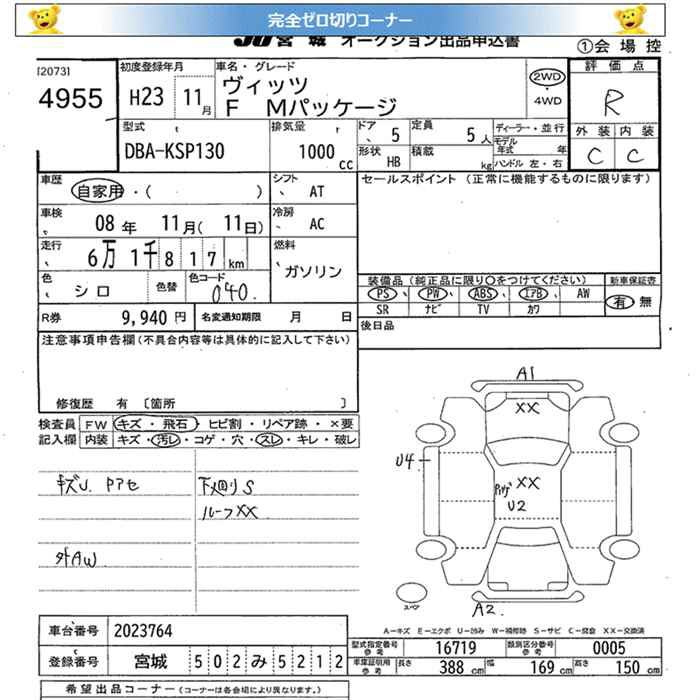 完全ゼロ切りコーナー
JU 宮 城 オークション出品申込書
①会 場 控
[2073]
4955
初度登録年月
H23 11月
車名・グレード
ヴィッツ
F Mパッケージ
2WD
・
4WD
評 価 点
R
外 装 内 装
C C
型式
DBA-KSP130
排気量
1000 cc
ドア 5
定員 5人
形状 HB
積載 kg
ディーラー・並 行
モデル年式 年
ハンドル 左・右
車歴
自家用・( )
シフト
AT
セールスポイント (正常に機能するものに限ります)
車検
08 年 11月( 11日)
冷房
AC
走行
6万 1千 8 1 7 km
燃料
ガソリン
色
シロ
色替
色コード
040.
装備品 (純正品に限り○をつけてください)
新車保証書
PS、 PW、 ABS、 エアB、 AW
有・無
SR ナビ TV カワ
R券 9,940 円
名変通知期限 月 日
後日品
注意事項申告欄 (不具合内容等は具体的に記入して下さい)
修復歴 有 〔箇所 〕
検査員記入欄
FW キズ ・ 飛石・ ヒビ割 ・ リペア跡 ・ ×要
内装 キズ・汚レ・コゲ・穴・スレ・キレ・破レ
キズU. Pアセ
下廻りS
ルーフXX
外AW
A1
XX
U4
XX
U2
A2
スペア
A−キズ E−エクボ U−凹み W−補修跡 S−サビ C−腐食 XX−交換済
車台番号 2023764
型式指定番号 参考 16719
類別区分番号 参考 0005
登録番号 宮城 5 0 2 み 5 2 1 2
車庫証明用 参考 長さ 388 cm 幅 169 cm 高さ 150 cm
希望出品コーナー (コーナーは各会場により異なります。)